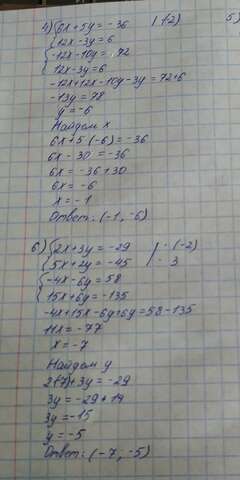 4) {6x + 5y = -36 | · (-2) 5)
{12x - 3y = 6
{-12x - 10y = 72
{12x - 3y = 6
-12x + 12x - 10y - 3y = 72 + 6
-13y = 78
y = -6
Найдем x
6x + 5 (-6) = -36
6x - 30 = -36
6x = -36 + 30
6x = -6
x = -1
Ответ: (-1, -6)
6) {2x + 3y = -29 | · (-2)
{5x + 2y = -45 | · 3
{-4x - 6y = 58
{15x + 6y = -135
-4x + 15x - 6y + 6y = 58 - 135
11x = -77
x = -7
Найдем y
2(-7) + 3y = -29
3y = -29 + 14
3y = -15
y = -5
Ответ: (-7, -5)